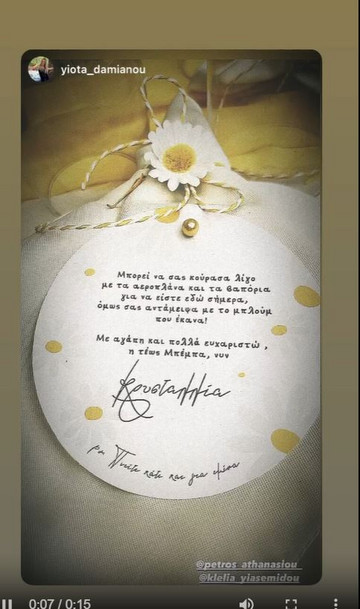 yiota_damianou
Μπορεί να σας κούρασα λίγο
με τα αεροπλάνα και τα βαπόρια
για να είστε εδώ σήμερα,
όμως σας αντάμειψα με το μπλούμ
που έκανα!
Με αγάπη και πολλά ευχαριστώ ,
η τέως Μπέμπα, νυν
Κρυσταλλία
Πιείτε κάτι και για μένα
@petros_athanasiou_
@klelia_yiasemidou
0:07 / 0:15